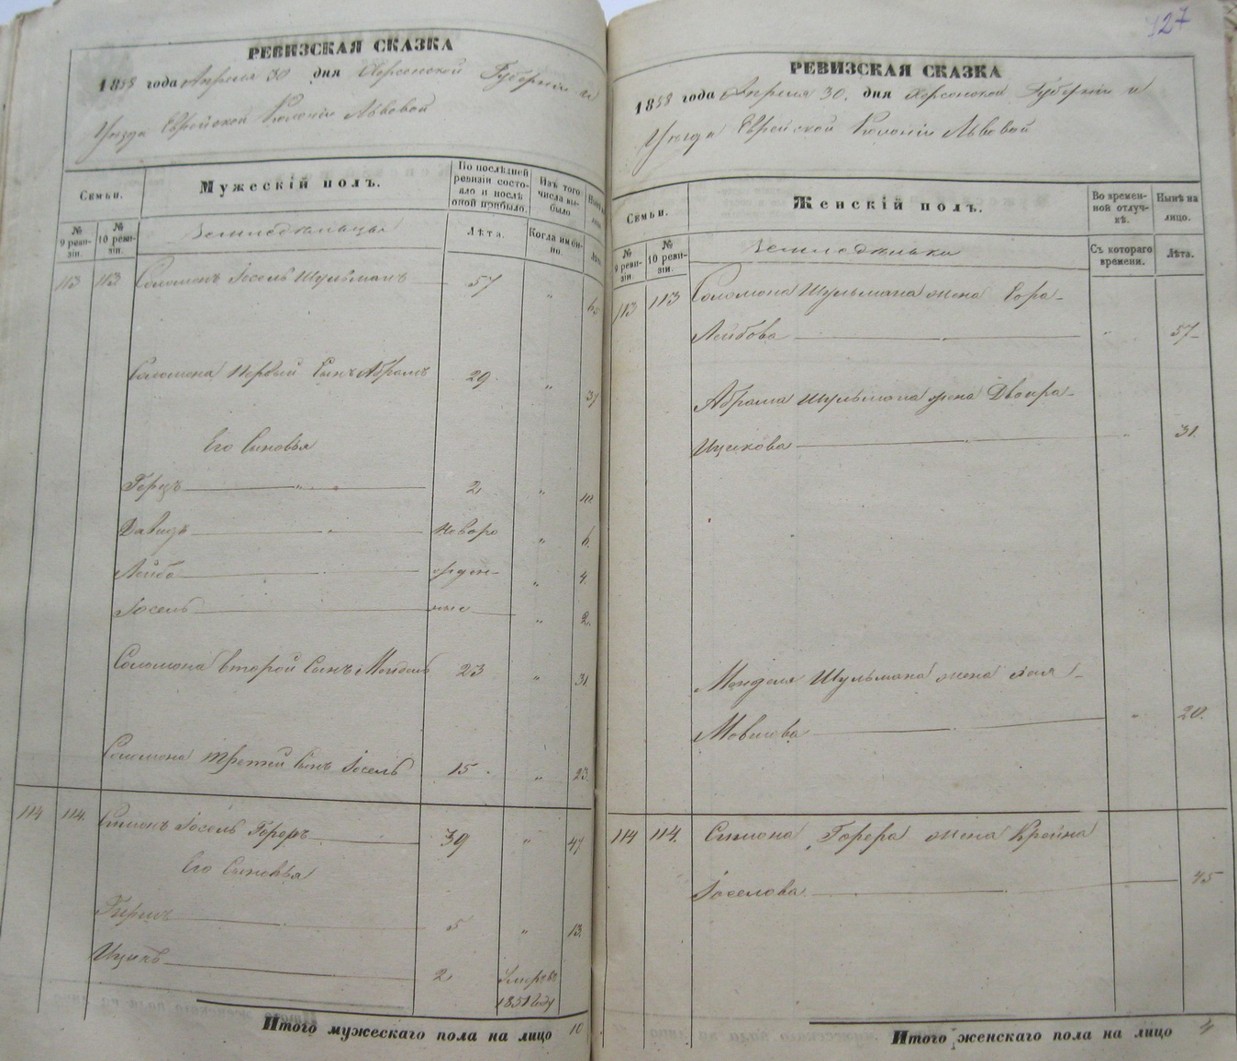 РЕВИЗСКАЯ СКАЗКА
1858 года Апреля 30 дня Херсонской Губерніи и
Уезда Еврейской Колоніи Львовой
Семьи.
Мужескій полъ.
По последней ревизіи состояло и после оной прибыло.
Изъ того числа выбыло.
№ 9 ревизіи.
№ 10 ревизіи.
Земледельцы
Лѣта.
Когда именно.
Лѣта.
113 113 Соломонъ Іосель Шульманъ 57 "
Соломона Первый Сынъ Абрамъ 29 "
Его Сыновья
2 " 10
Давидъ новоро " 6
Лейба жден- " 4.
Іосель ные " 2.
Соломона второй Сынъ Мендель 23 " 31
Соломона третій Сынъ Іосель 15 " 23.
114 114. Симонъ Іосель 39 " 47
Его Сыновья
5 " 13.
Ицикъ 2 Умеръ въ
1851 Году
Итого мужескаго пола на лицо 10
127
РЕВИЗСКАЯ СКАЗКА
1858 года Апреля 30. дня Херсонской Губерніи и
Уезда Еврейской Колоніи Львовой
Семьи.
Женскій полъ.
Во временной отлучкѣ.
Нынѣ на лицо.
№ 9 ревизіи.
№ 10 ревизіи.
Земледельки
Съ котораго времени.
Лѣта.
113 113 Соломона Шульмана жена Сора
Лейбова " 57
Абрама Шульмана жена Двойра
Ицикова " 31.
Менделя Шульмана жена Хая
" 20.
114 114. Симона жена Крейна
Іоселова 45
Итого женскаго пола на лицо 4